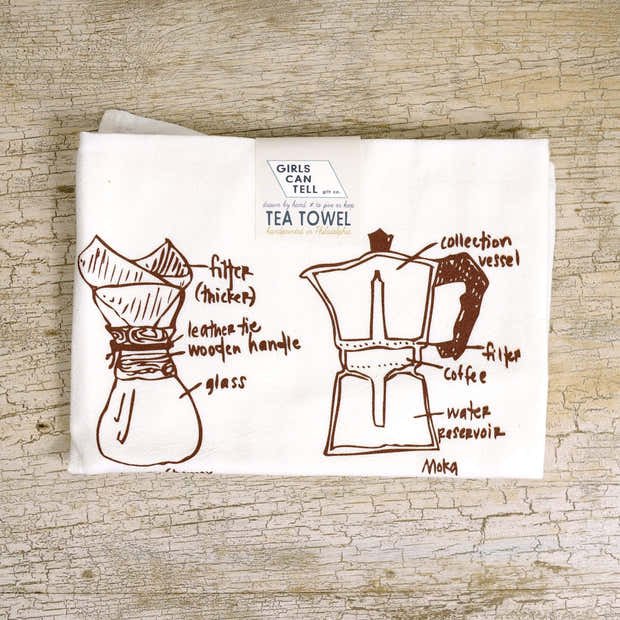 GIRLS
CAN
TELL
gift co.
drawn by hand x to give or keep
TEA TOWEL
handprinted in Philadelphia
filter
(thicker)
leather tie
wooden handle
glass
collection
vessel
filter
coffee
water
reservoir
Moka